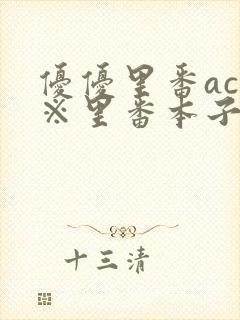 優優里番ac
※里番本子
十三清